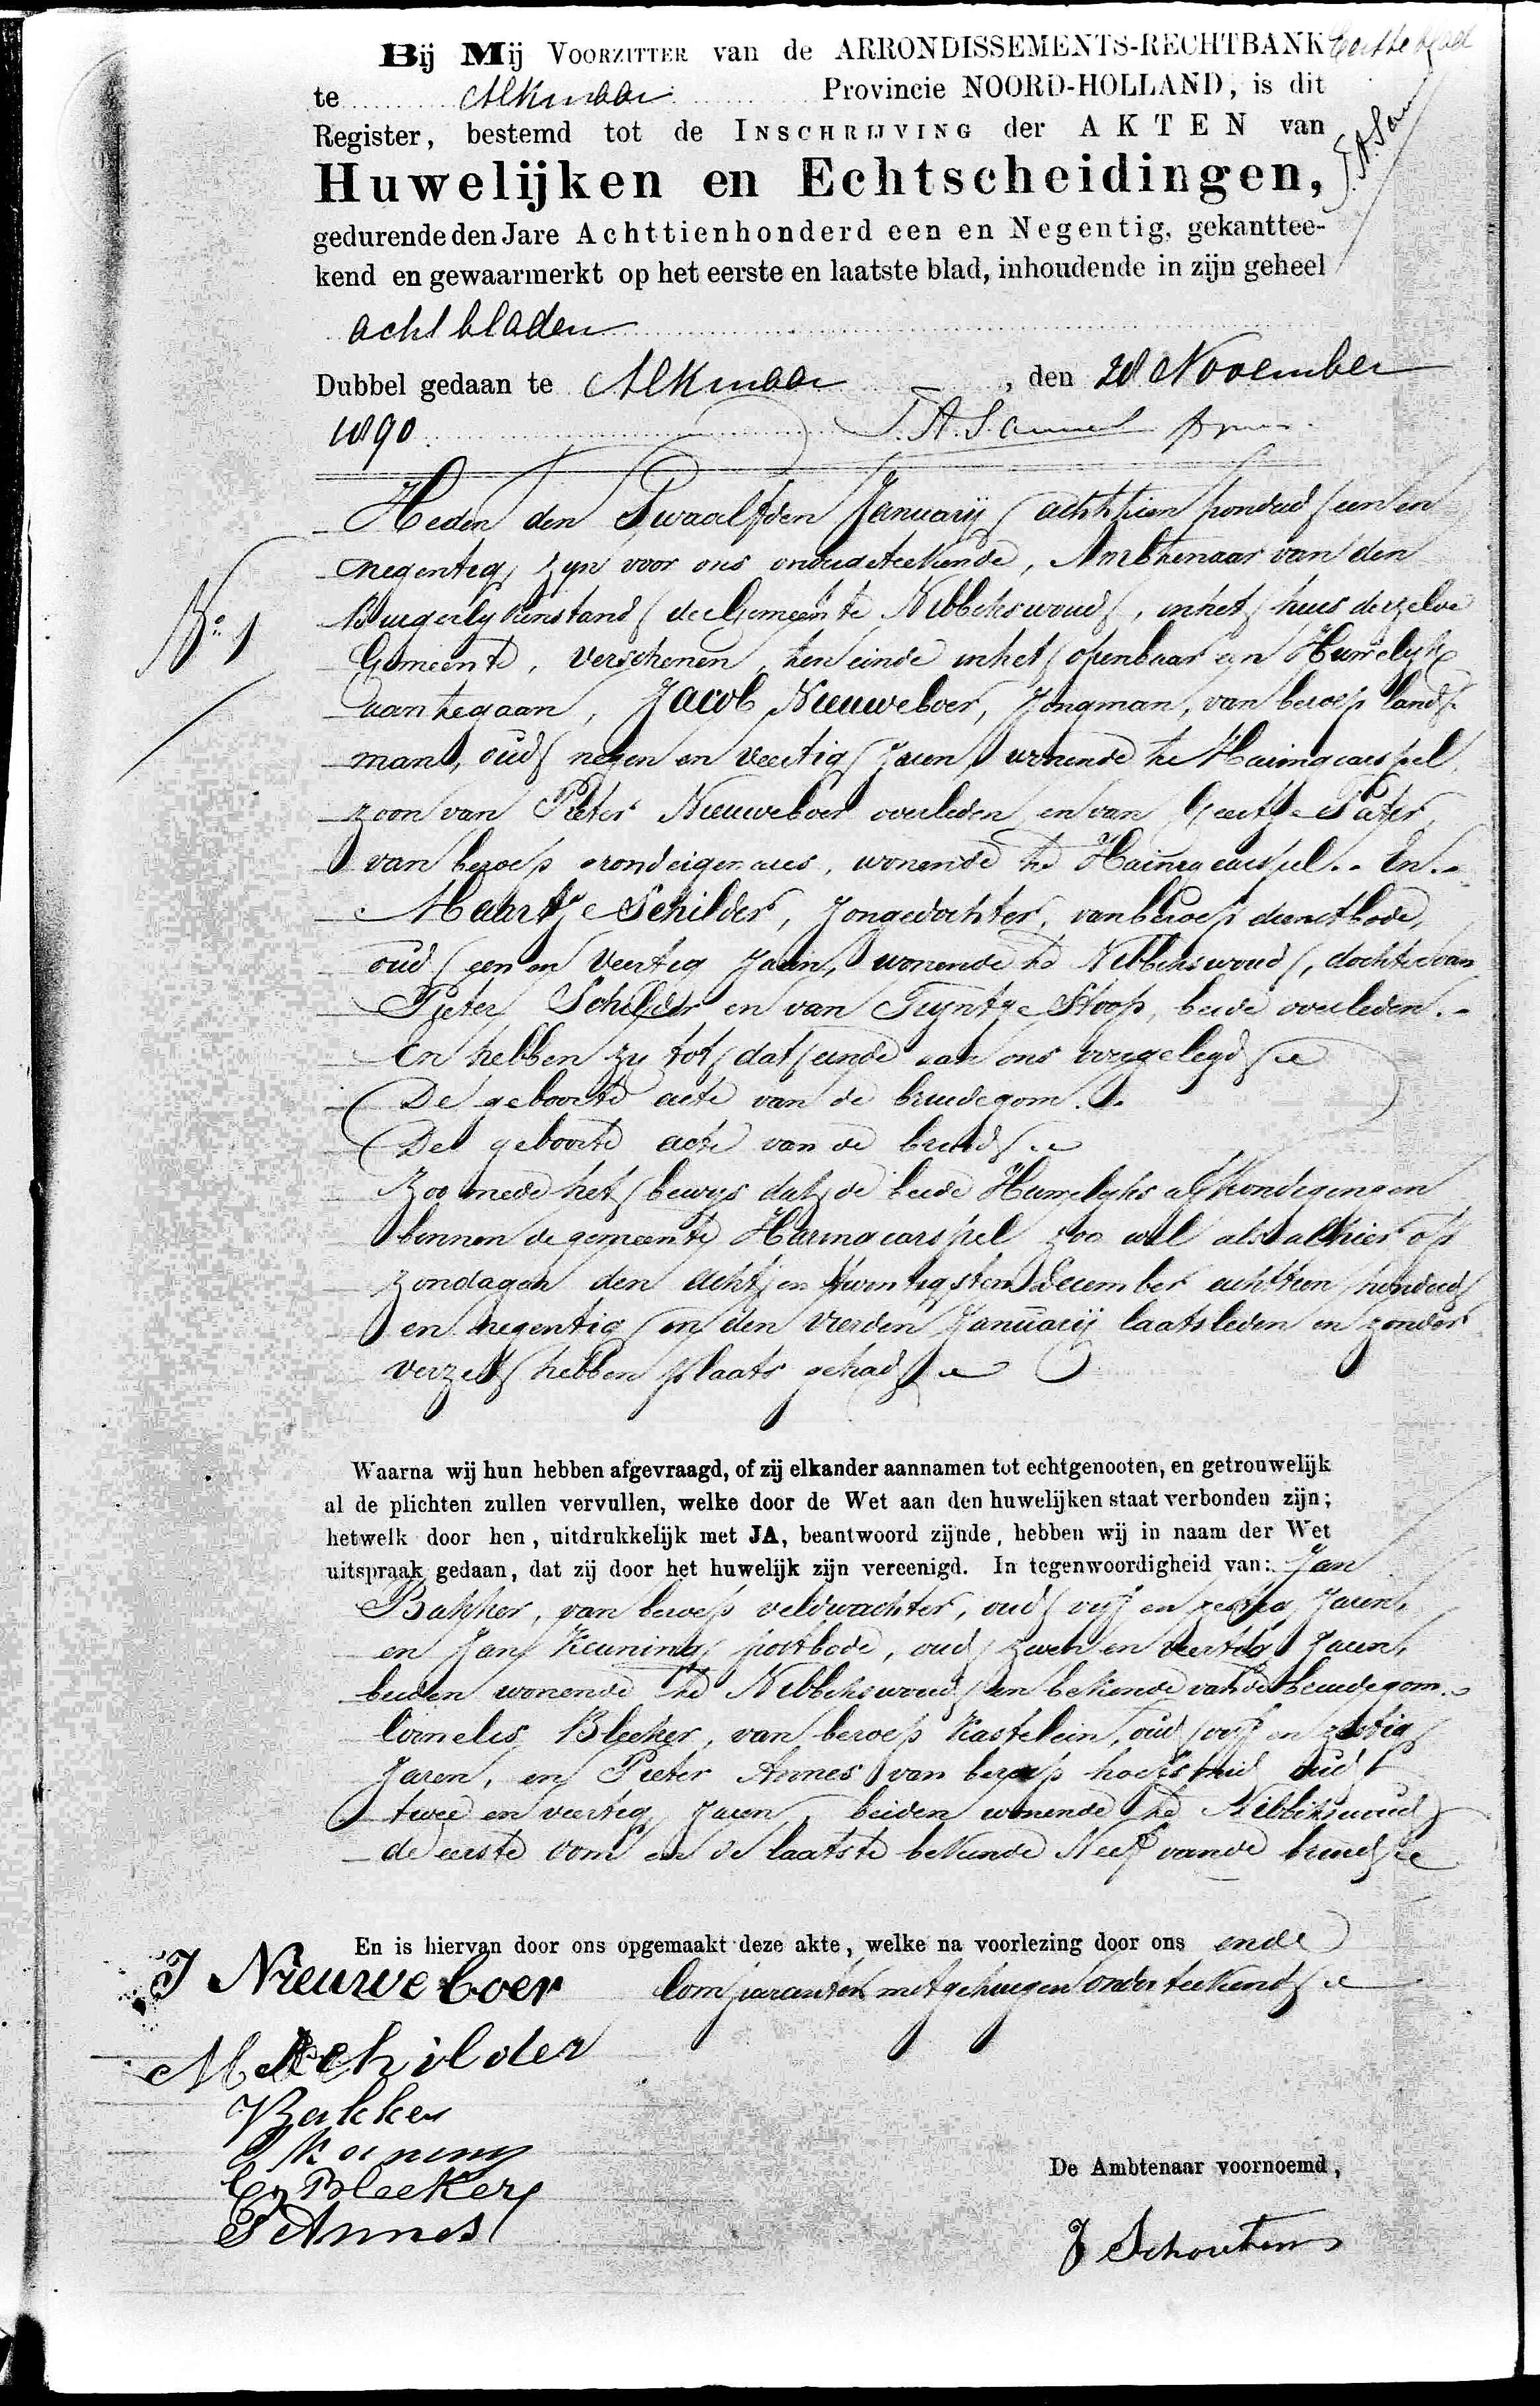 Bij Mij VOORZITTER van de ARRONDISSEMENTS-RECHTBANK Eerste blad
te Alkmaar Provincie NOORD-HOLLAND, is dit
Register, bestemd tot de INSCHRIJVING der AKTEN van
Huwelijken en Echtscheidingen,
gedurende den Jare Achttienhonderd een en Negentig, gekanttee-
kend en gewaarmerkt op het eerste en laatste blad, inhoudende in zijn geheel
acht bladen
Dubbel gedaan te Alkmaar, den 28 November
1890.
Heden den Twaalfden Januarij achttien honderd een en
negentig, zijn voor ons ondergeteekende, Ambtenaar van den
No. 1 Burgerlijkenstand der Gemeente Nibbikswoud, in het huis derzelve
Gemeente, verschenen, ten einde in het openbaar een Huwelijk
aantegaan, Jacob Nieuweboer, Jongman, van beroep land-
man, oud negen en veertig Jaren, wonende te Haringcarspel
zoon van Pieter Nieuweboer overleden en van Geertje Pater,
van beroep grondeigenares, wonende te Haringcarspel. En
Maartje Schilder, Jongedochter, van beroep dienstbode,
oud een en veertig Jaren, wonende te Nibbikswoud, dochter van
Pieter Schilder en van Trijntje Stoop, beide overleden.
En hebben zij tot dat einde aan ons voorgelegd
De geboorte acte van de bruidegom.
De geboorte acte van de bruid
Zoo mede het bewijs dat de beide Huwelijks afkondigingen
binnen de gemeente Haringcarspel zoo wel als alhier op
zondagen den acht en twintigsten December achttien honderd
en negentig en den vierden Januarij laatsleden en zonder
verzet hebben plaats gehad
Waarna wij hun hebben afgevraagd, of zij elkander aannamen tot echtgenooten, en getrouwelijk
al de plichten zullen vervullen, welke door de Wet aan den huwelijken staat verbonden zijn;
hetwelk door hen, uitdrukkelijk met JA, beantwoord zijnde, hebben wij in naam der Wet
uitspraak gedaan, dat zij door het huwelijk zijn vereenigd. In tegenwoordigheid van: Jan
Bakker, van beroep veldwachter, oud vijf en zestig Jaren,
en Jan Keuning postbode, oud zeven en veertig Jaren,
beiden wonende te Nibbikswoud en bekende van de bruidegom.
Cornelis Bleeker, van beroep Kastelein, oud vijf en zestig
Jaren, en Pieter Annes van beroep hoefsmid oud
twee en veertig Jaren, beiden wonende te Nibbikswoud
de eerste oom en de laatste bekende Neef van de bruid
En is hiervan door ons opgemaakt deze akte, welke na voorlezing door ons en de
Comparanten met getuigen onderteekend
J Nieuweboer
M Schilder
J Bakker
J Koning
Cs Bleeker
P Annes
De Ambtenaar voornoemd,
J Schouten